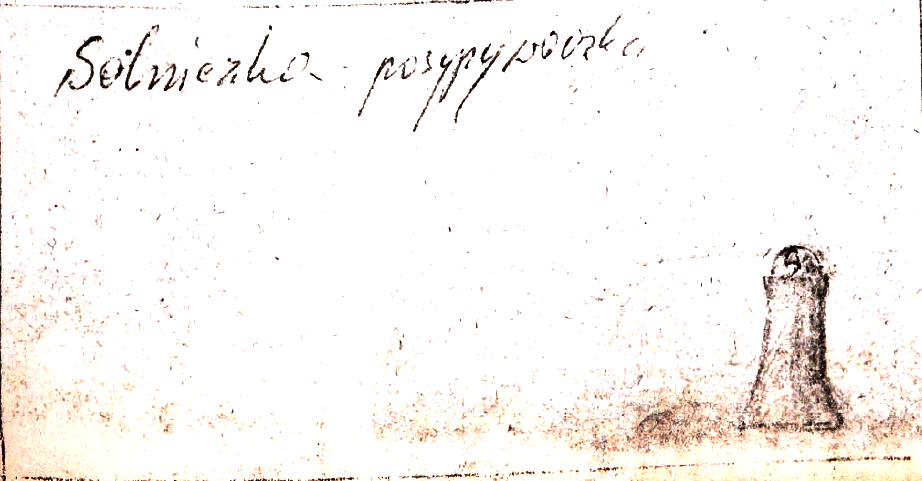 Solniczka posypywaczka